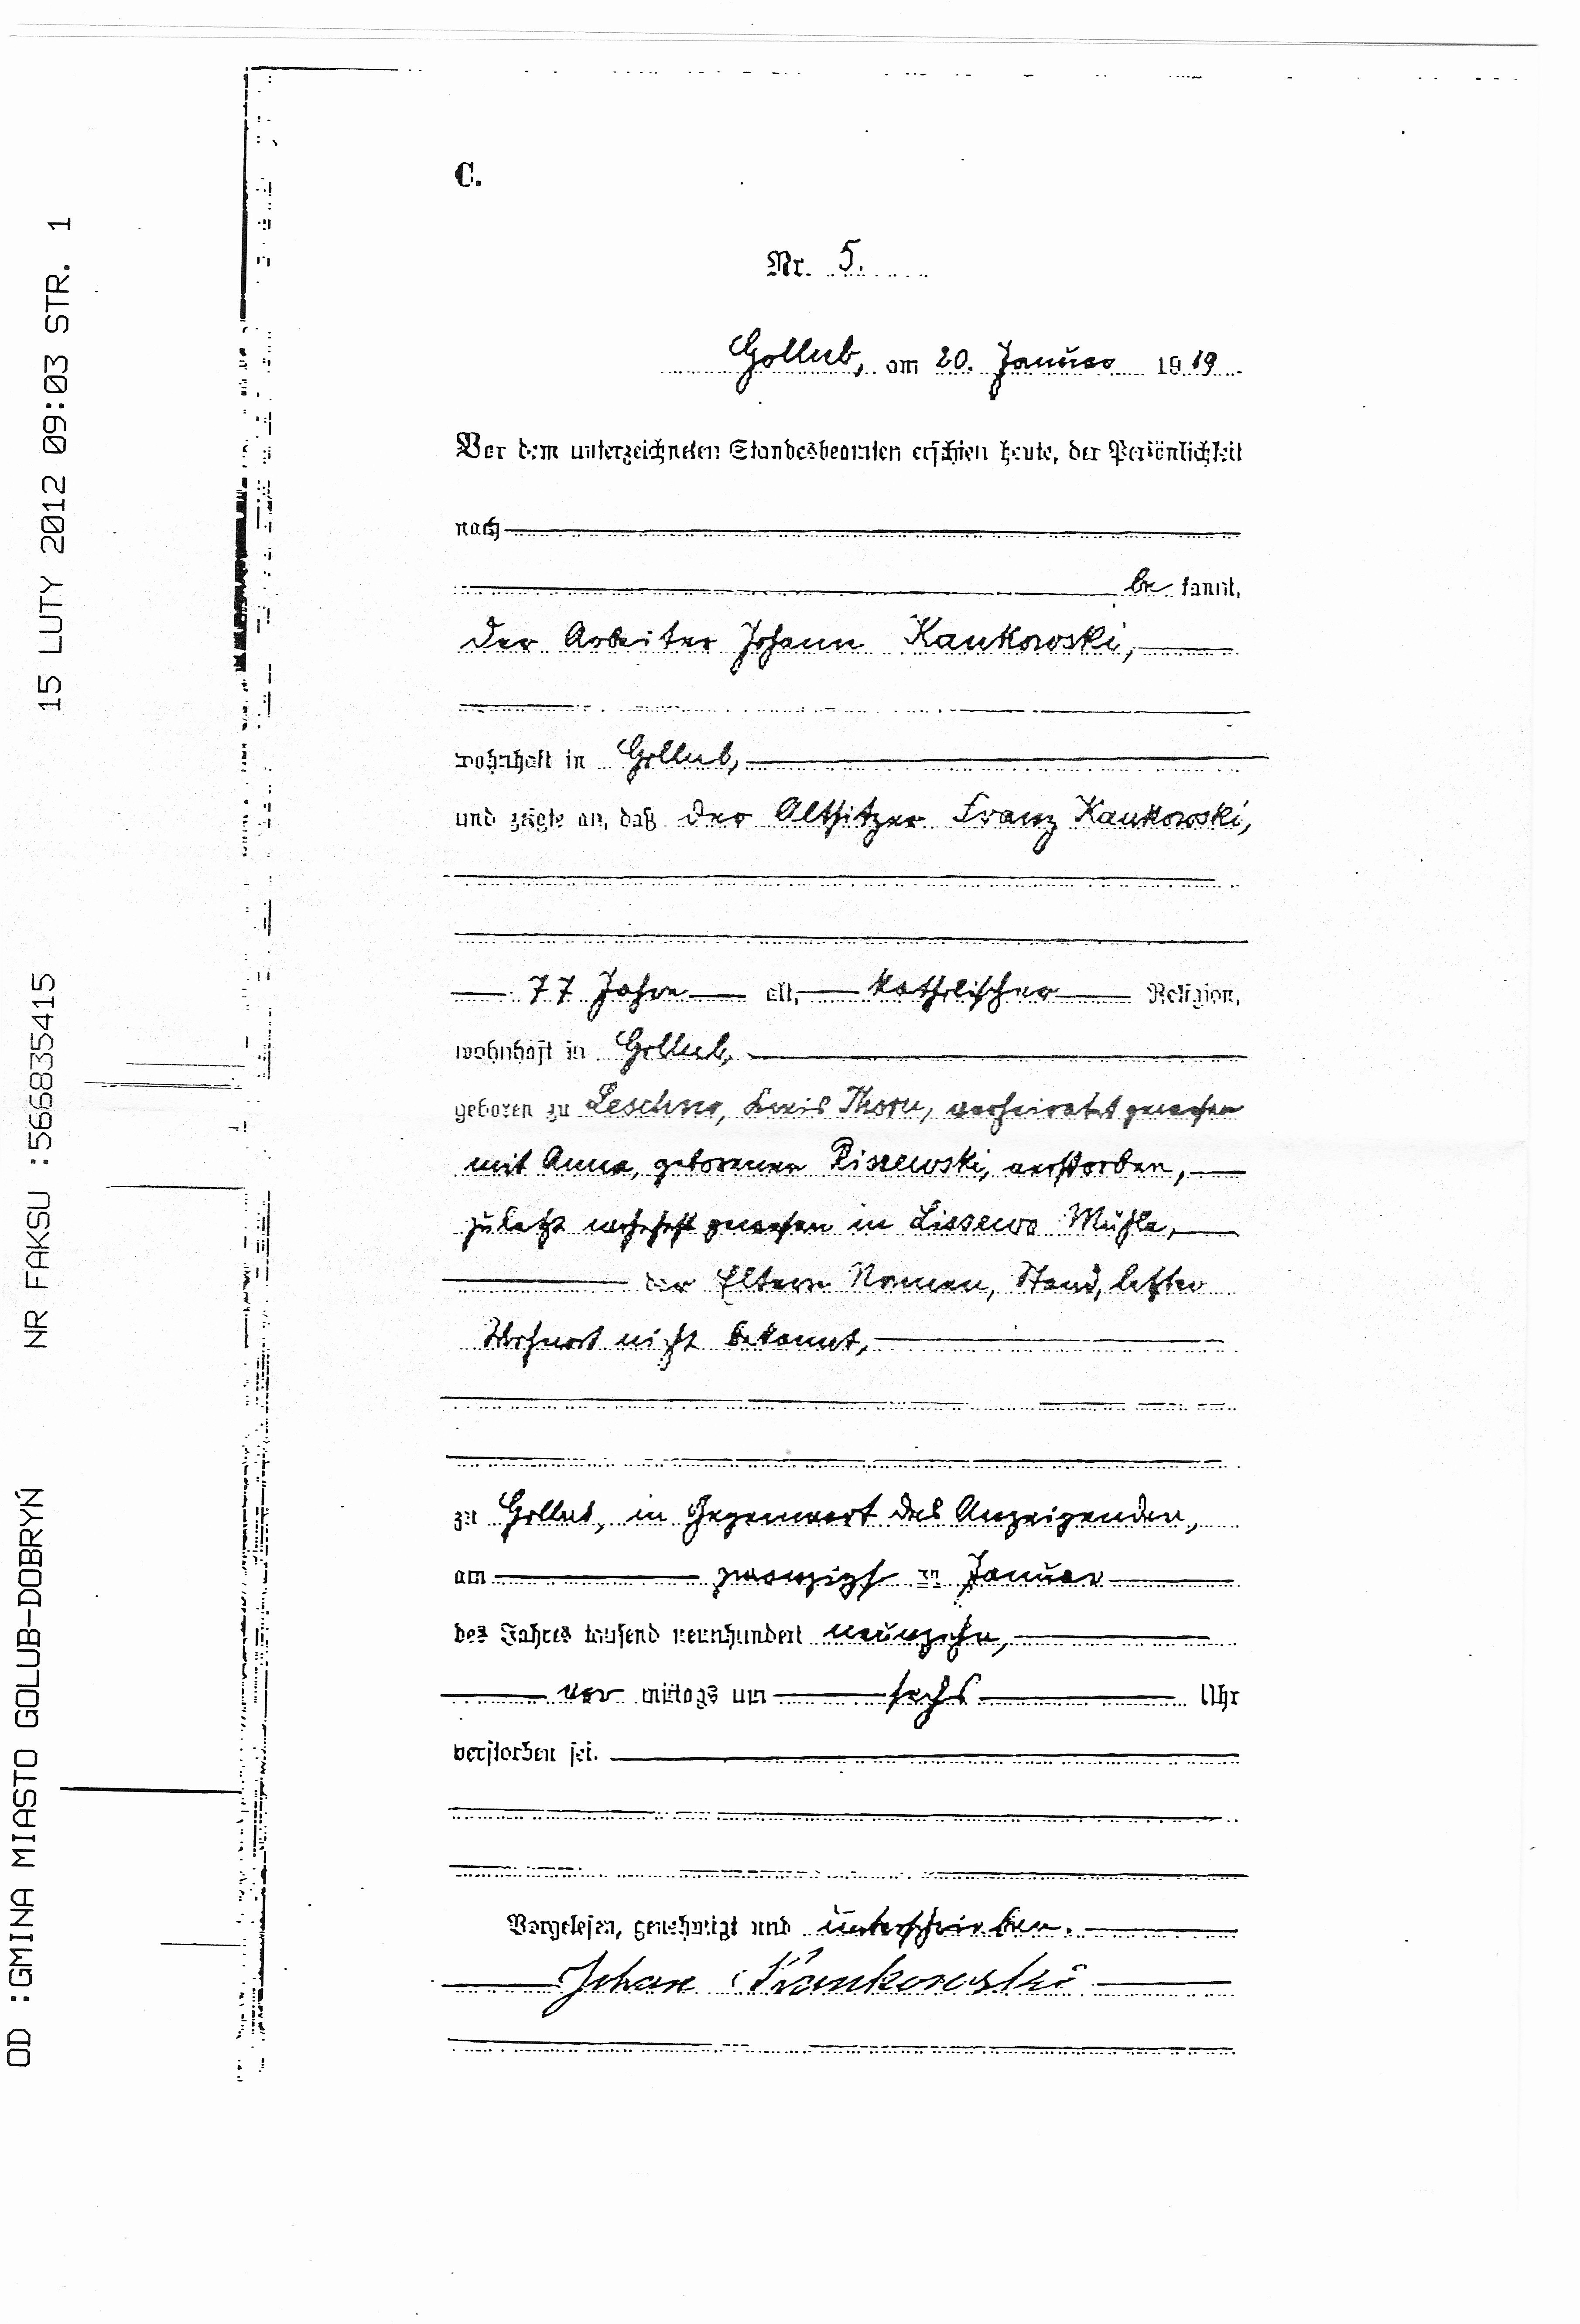 C.
Nr. 5.
Gollub, am 20. Januar 1919
Vor dem unterzeichneten Standesbeamten erschien heute, der Persönlichkeit
nach
be kannt,
der Arbeiter Johann Kankowski,
wohnhaft in Gollub,
und zeigte an, daß der Altsitzer Franz Kankowski,
77 Jahre alt, katholischer Religion,
wohnhaft in Gollub,
geboren zu Leschno, Kreis Thorn, verheiratet gewesen
mit Anna, geborenen Piszewski, verstorben,
zuletzt wohnhaft gewesen in Lissewo Mühle,
der Eltern Namen, Stand, letzter
Wohnort nicht bekannt,
zu Gollub, in Gegenwart des Anzeigenden,
am zwanzigst en Januar
des Jahres tausend neunhundert neunzehn,
vor mittags um sechs Uhr
verstorben sei.
Vorgelesen, genehmigt und unterschrieben.
Johan Kankowski
OD :GMINA MIASTO GOLUB-DOBRYŃ NR FAKSU :566835415 15 LUTY 2012 09:03 STR. 1